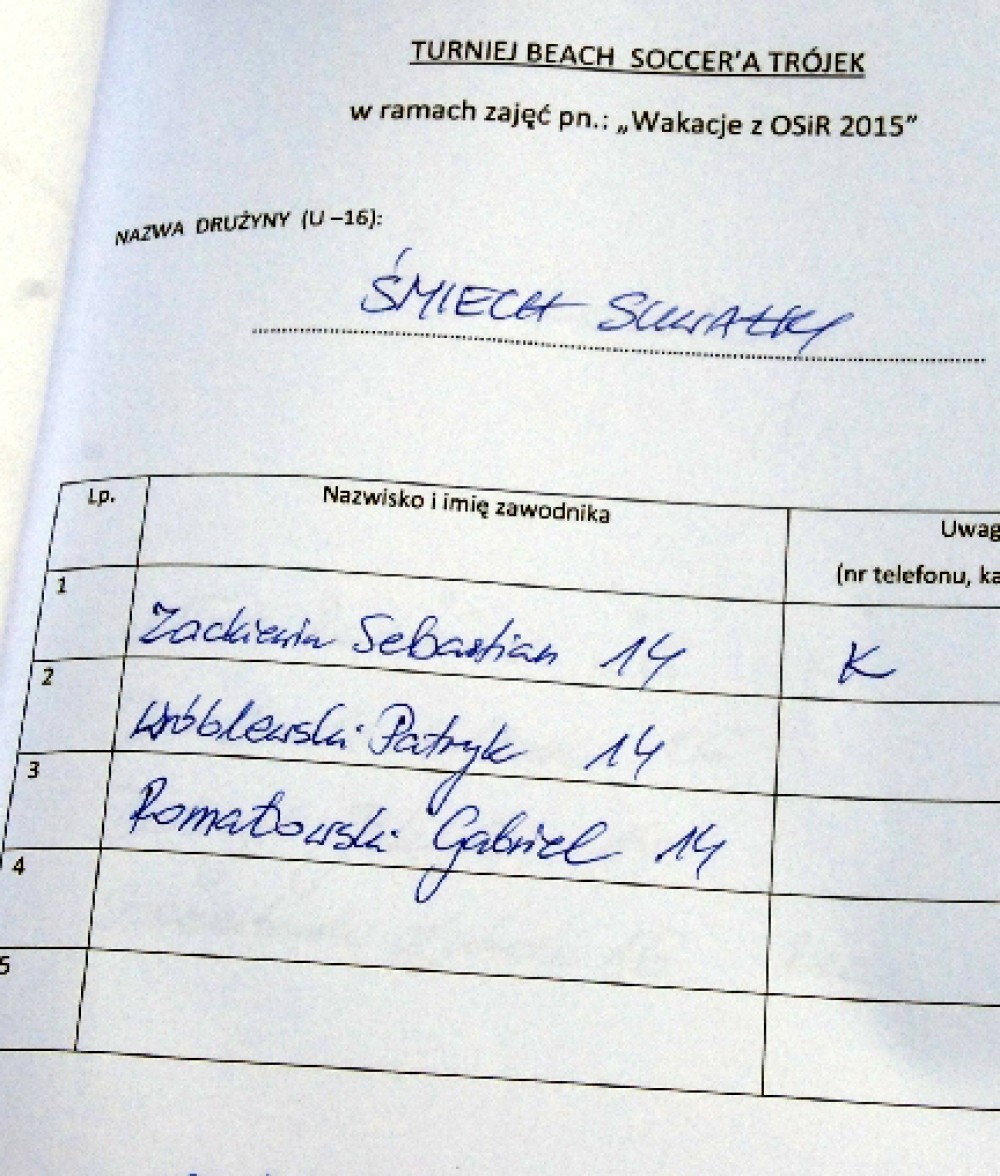 TURNIEJ BEACH SOCCER'A TRÓJEK
w ramach zajęć pn.: „Wakacje z OSiR 2015”
NAZWA DRUŻYNY (U –16):
ŚMIECH SUWAŁKI
Lp. Nazwisko i imię zawodnika Uwag
(nr telefonu, ka
1 Sebastian 14 K
2 Wróblewski Patryk 14
3 Romatowski Gabriel 14
4
5